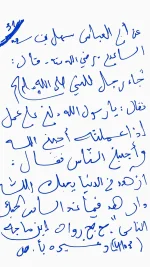 ٣١
عن أبي العباس سهل بن سعد
الساعدي رضي الله عنه قال:
جاء رجل للنبي صلى الله عليه
فقال: يا رسول الله دلني على عمل
إذا عملته أحبني الله
وأحبني الناس فقال:
ازهد في الدنيا يحبك الله
وازهد فيما عند الناس يحبك
الناس. رواه ابن ماجه
وغيره